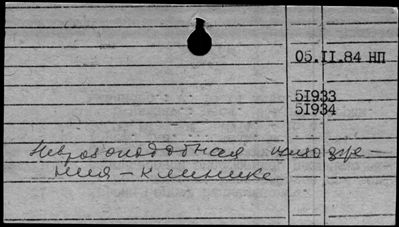 05.II.84 НП
5I933
5I934
Неврозоподобная шизофре-
ния - клиника